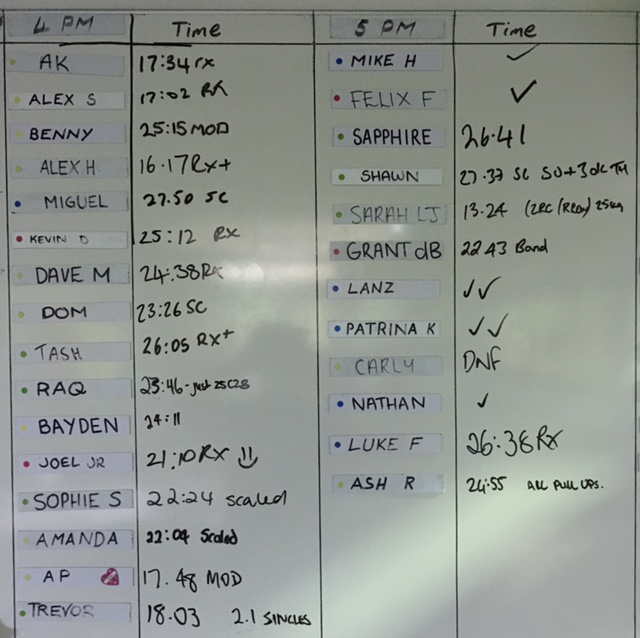 4 PM Time 5 PM Time
AK 17:34 rx MIKE H ✓
ALEX S 17:02 RX FELIX F ✓
BENNY 25:15 MOD SAPPHIRE 26.41
ALEX H 16.17 Rx+ SHAWN 27.37 SC SU+3
MIGUEL 27.50 SC SARAH LJ 13.24
KEVIN D 25:12 RX GRANT dB 22 43 Band
DAVE M 24:38 RX LANZ ✓✓
DOM 23:26 SC PATRINA K ✓✓
TASH 26:05 Rx+ CARLY DNF
RAQ 23:46 - just NATHAN ✓
BAYDEN 24:11 LUKE F 26:38 RX
JOEL JR 21:10 RX ASH R 24:55 ALL PULL UPS.
SOPHIE S 22:24 scaled
AMANDA 22:04 Scaled
AP 17.48 MOD
TREVOR 18.03 2.1 SINGLES